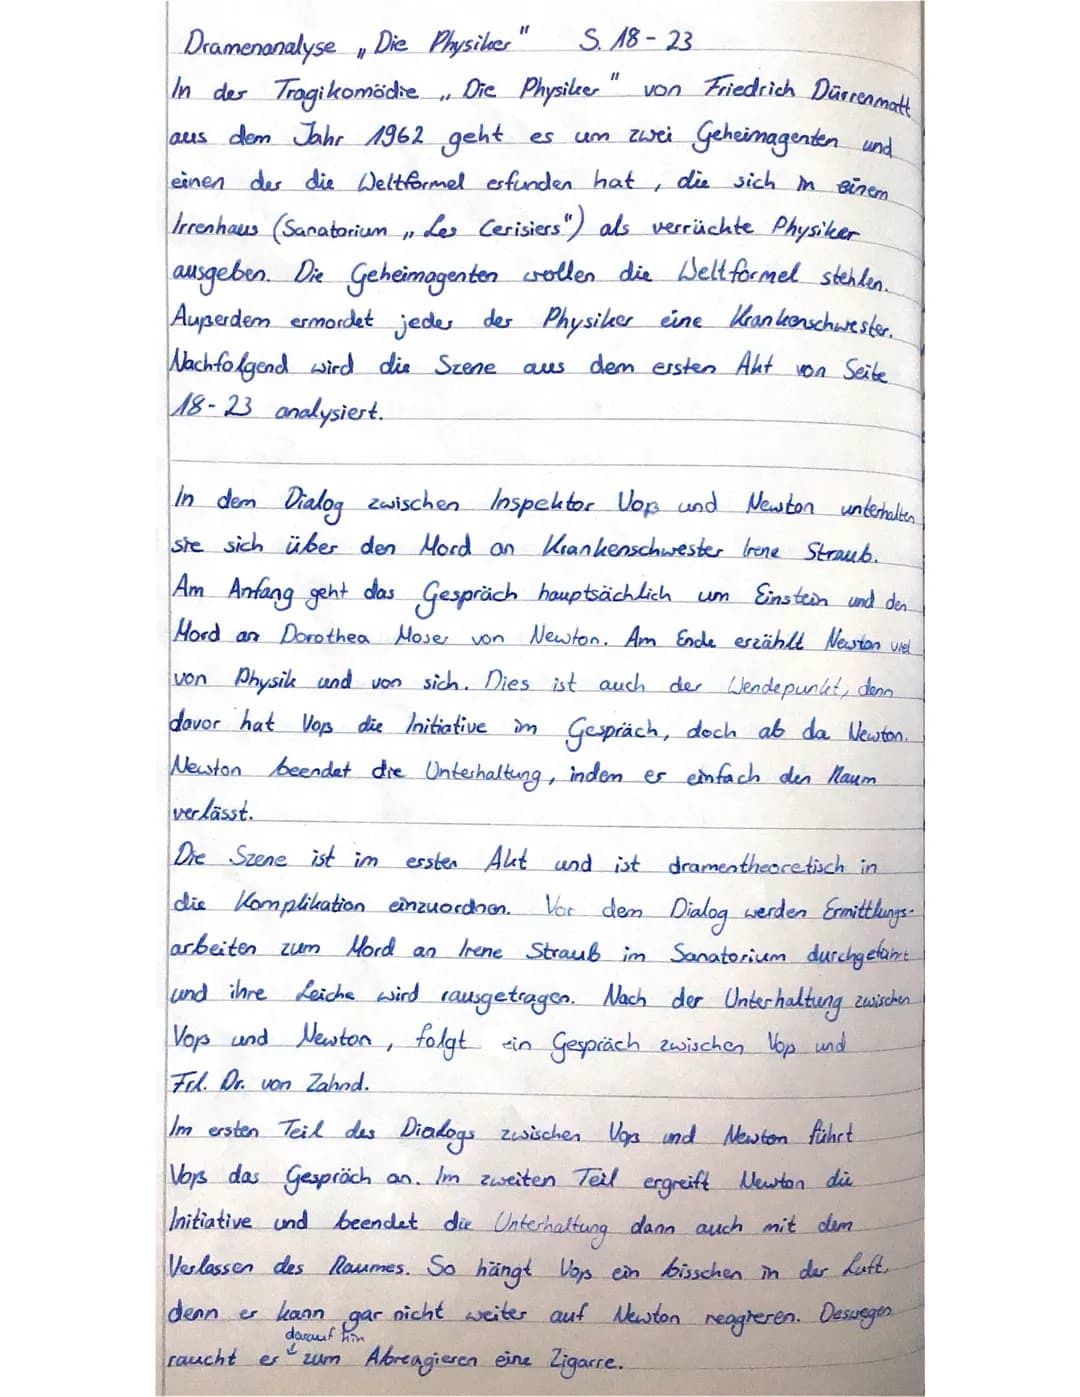 Dramenanalyse „Die Physiker" S. 18 - 23
In der Tragikomödie „Die Physiker" von Friedrich Dürrenmatt
aus dem Jahr 1962 geht es um zwei Geheimagenten und
einen der die Weltformel erfunden hat, die sich in einem
Irrenhaus (Sanatorium „Les Cerisiers") als verrückte Physiker
ausgeben. Die Geheimagenten wollen die Weltformel stehlen.
Außerdem ermordet jeder der Physiker eine Krankenschwester.
Nachfolgend wird die Szene aus dem ersten Akt von Seite
18 - 23 analysiert.
In dem Dialog zwischen Inspektor Voß und Newton unterhalten
sie sich über den Mord an Krankenschwester Irene Straub.
Am Anfang geht das Gespräch hauptsächlich um Einstein und den
Mord an Dorothea Moser von Newton. Am Ende erzählt Newton viel
von Physik und von sich. Dies ist auch der Wendepunkt, denn
davor hat Voß die Initiative im Gespräch, doch ab da Newton.
Newton beendet die Unterhaltung, indem er einfach den Raum
verlässt.
Die Szene ist im ersten Akt und ist dramentheoretisch in
die Komplikation einzuordnen. Vor dem Dialog werden Ermittlungs-
arbeiten zum Mord an Irene Strauß im Sanatorium durchgeführt
und ihre Leiche wird rausgetragen. Nach der Unterhaltung zwischen
Voß und Newton, folgt ein Gespräch zwischen Voß und
Frl. Dr. von Zahnd.
Im ersten Teil des Dialogs zwischen Voß und Newton führt
Voß das Gespräch an. Im zweiten Teil ergreift Newton die
Initiative und beendet die Unterhaltung dann auch mit dem
Verlassen des Raumes. So hängt Voß ein bisschen in der Luft,
denn er kann gar nicht weiter auf Newton reagieren. Deswegen
darauf hin
raucht er zum Abreagieren eine Zigarre.